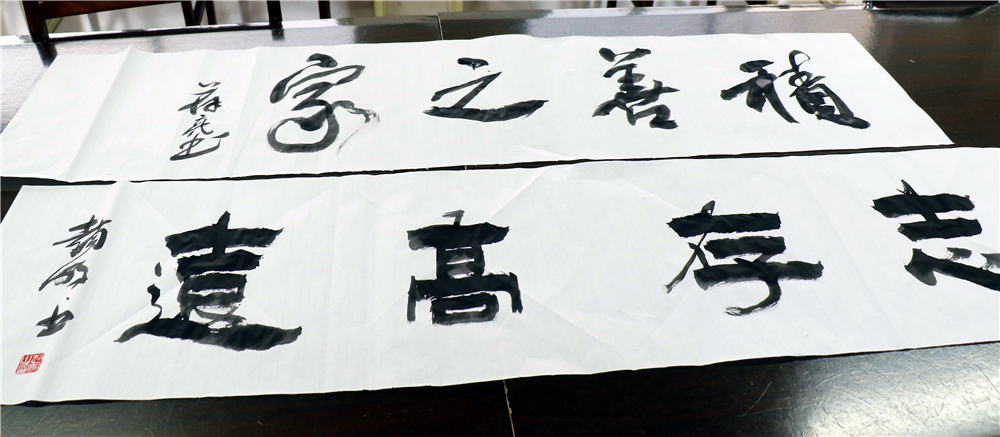 積善之家
志存高遠